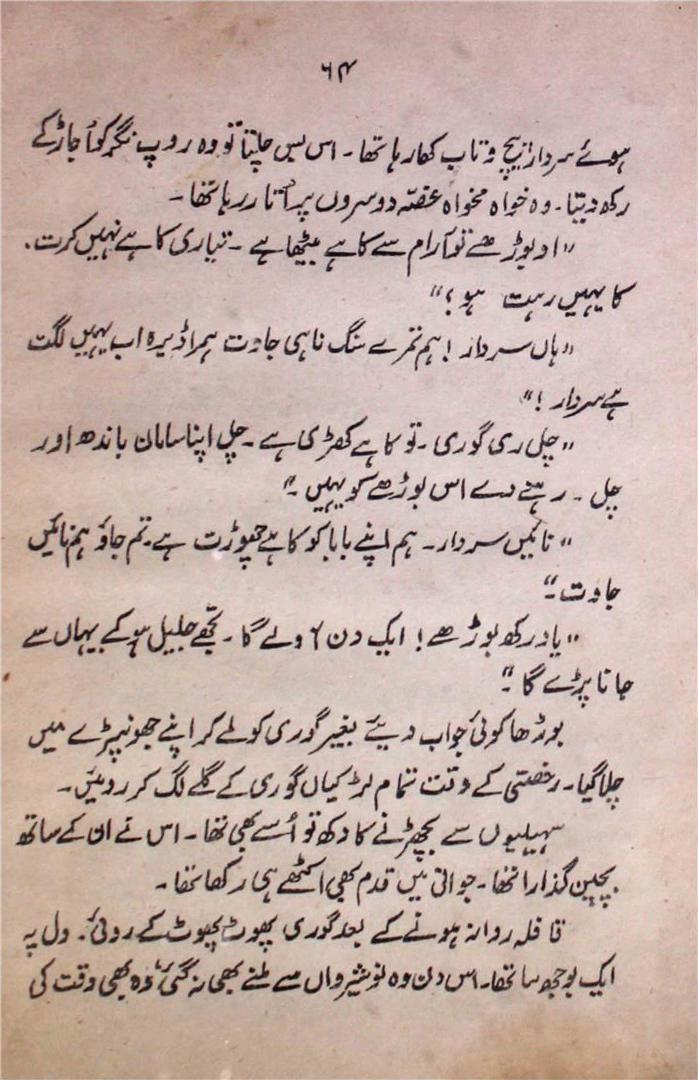 ۶۴
ہوئے سردار پیچ و تاب کھا رہا تھا۔ اس بس چلتا تو وہ روپ نگر کو اُجاڑ کے
رکھ دیتا۔ وہ خواہ مخواہ غصّہ دوسروں پر اُتار رہا تھا۔
"او بوڑھے تو آرام سے کاہے بیٹھا ہے۔ تیاری کاہے نہیں کرت۔
کا یہیں رہت ہو؟"
"ہاں سردار! ہم تمرے سنگ ناہی جاوت ہمرا ڈیرہ اب یہیں لگت
ہے سردار!"
"چل ری گوری۔ تو کاہے کھڑی ہے۔ چل اپنا سامان باندھ اور
چل۔ رہنے دے اس بوڑھے کو یہیں۔"
"نائیں سردار۔ ہم اپنے بابا کو کاہے چھوڑت ہے۔ تم جاؤ ہم نائیں
جاوت۔"
"یاد رکھ بوڑھے! ایک دن آوے گا۔ تجھے جلیل ہو کے یہاں سے
جانا پڑے گا۔"
بوڑھا کوئی جواب دیئے بغیر گوری کو لے کر اپنے جھونپڑے میں
چلا گیا۔ رخصتی کے وقت تمام لڑکیاں گوری کے گلے لگ کر روئیں۔
سہیلیوں سے بچھڑنے کا دکھ تو اُسے بھی تھا۔ اس نے ان کے ساتھ
بچپن گذارا تھا۔ جوانی میں قدم بھی اکٹھے ہی رکھا تھا۔
قافلہ روانہ ہونے کے بعد گوری پھوٹ پھوٹ کے روئی۔ دل پہ
ایک بوجھ سا تھا۔ اس دن وہ نوشیرواں سے ملنے بھی نہ گئی، وہ بھی وقت کی